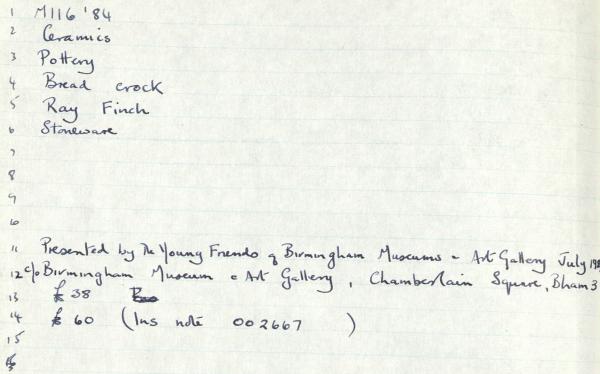 1 M116 '84
2 Ceramics
3 Pottery
4 Bread crock
5 Ray Finch
6 Stoneware
7
8
9
10
11 Presented by The Young Friends of Birmingham Museums & Art Gallery July
12 c/o Birmingham Museum & Art Gallery, Chamberlain Square, Bham 3
13 £ 38
14 £ 60 (Ins note 002667 )
15
16